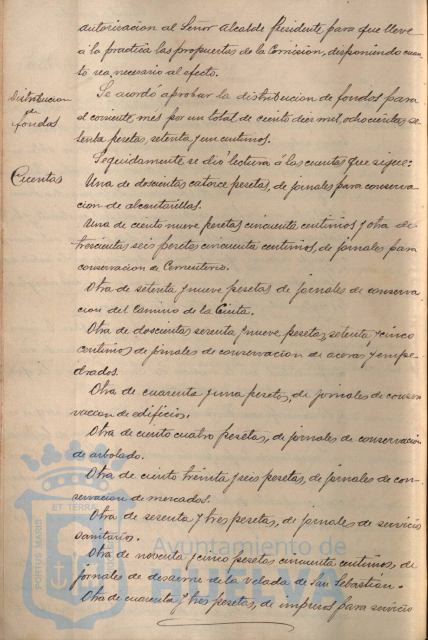 autorizacion al Señor Alcalde Presidente para que lleve
á la practica las propuestas de la Comisión, disponiendo cuan-
to sea necesario al efecto.
Distribucion
de
fondos
Se acordó aprobar la distribucion de fondos para
el corriente mes por un total de ciento diez mil, ochocientas se-
tenta pesetas, setenta y un centimos.
Seguidamente se dio lectura á las cuentas que sigue:
Cuentas
Una de doscientas catorce pesetas, de jornales para conserva-
cion de alcantarillas.
Una de ciento nueve pesetas cincuenta centimos y otra de
trescientas seis pesetas cincuenta centimos, de jornales para
conservacion de Cementerio.
Otra de setenta y nueve pesetas de jornales de conserva-
cion del Camino de la Cinta.
Otra de doscientas sesenta y nueve pesetas, setenta y cinco
centimos de jornales de conservacion de aceras y empe-
drados.
Otra de cuarenta y una pesetas, de jornales de conser-
vacion de edificios.
Otra de ciento cuatro pesetas, de jornales de conservación
de arbolado.
Otra de ciento treinta y seis pesetas, de jornales de con-
servacion de mercados.
Otra de sesenta y tres pesetas, de jornales de servicio
sanitarios.
Otra de noventa y cinco pesetas cincuenta centimos, de
jornales de desarme de la velada de San Sebastián.
Otra de cuarenta y tres pesetas, de impresos para servicio
PORTUS MARIS
ET TERRAE
Ayuntamiento de
HUELVA